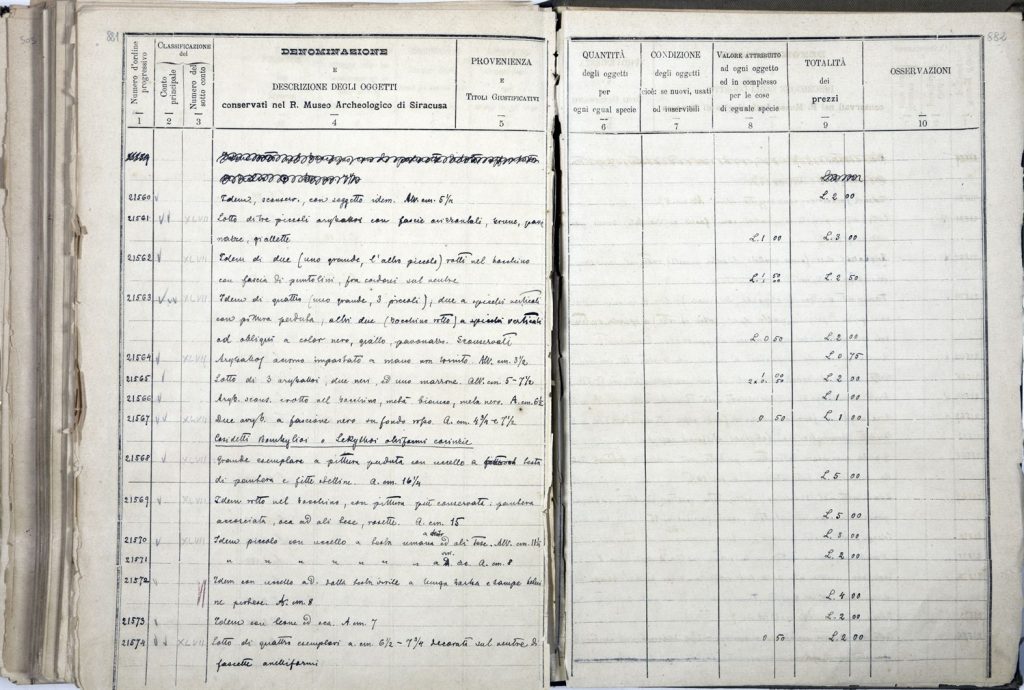 881
882
Numero d'ordine progressivo
CLASSIFICAZIONE del
Conto principale
Numero del sotto conto
DENOMINAZIONE
E
DESCRIZIONE DEGLI OGGETTI
conservati nel R. Museo Archeologico di Siracusa
PROVENIENZA
E
TITOLI GIUSTIFICATIVI
QUANTITÀ
degli oggetti
per
ogni egual specie
CONDIZIONE
degli oggetti
cioè: se nuovi, usati
od inservibili
VALORE ATTRIBUITO
ad ogni oggetto
ed in complesso
per le cose
di eguale specie
TOTALITÀ
dei
prezzi
OSSERVAZIONI
1 2 3 4 5 6 7 8 9 10
21560 Idem, sconserv., con soggetto idem. Alt. cm. 5 1/2 L. 2 00
21561 Lotto di tre piccoli aryballoi con fascie orizzontali, brune, pao-
nazze, giallette L. 1 00 L. 3 00
21562 XLVII Idem di due (uno grande, l'altro piccolo) rotti nel bocchino
con fascia di puntolini, fra cordoni sul ventre L. 2 50
21563 XLVII Idem di quattro (uno grande, 3 piccoli), due a spicchi verticali
con pittura perduta, altri due (bocchino rotto) a spicchi verticali
ad obliqui a color nero, giallo, paonazzo. Sconservati L. 0 50 L. 2 00
21564 XLVII impastato a mano non tornito. Alt. cm. 3 1/2 L. 0 75
21565 Lotto di 3 aryballoi, due neri, ed uno marrone. Alt. cm. 5 - 7 1/2 L. 2 00
21566 Aryb. scons. e rotto nel bocchino, metà bianco, metà nero. A. cm. 6 1/2 L. 1 00
21567 XLVII Due aryb. a fascione nero su fondo rosso. A. cm. 0 50 L. 1 00
Cosidetti Bombylioi o Lekythoi oliviformi corinzie
21568 XLVII Grande esemplare a pittura perduta con uccello a testa
di pantera e fitte rosettine. A. cm. 16 1/4 L. 5 00
21569 Idem rotto nel bocchino, con pittura più conservata: pantera
accosciata, oca ad ali tese, rosette. A. cm. 15 L. 5 00
21570 XLVII Idem piccolo con uccello a testa umana ed ali tese. Alt. cm. L. 3 00
21571 " " " " " " A. cm. 8 L. 2 00
21572 Idem con uccello ad. dalla testa virile a lunga barba e zampe
A. cm. 8 L. 4 00
21573 Idem con leone ed oca. A cm 7 L. 2 00
21574 XLVII Lotto di quattro esemplari a. cm. 6 1/2 - 7 3/4 decorati sul ventre di 0 50 L. 2 00
fascette anelliformi